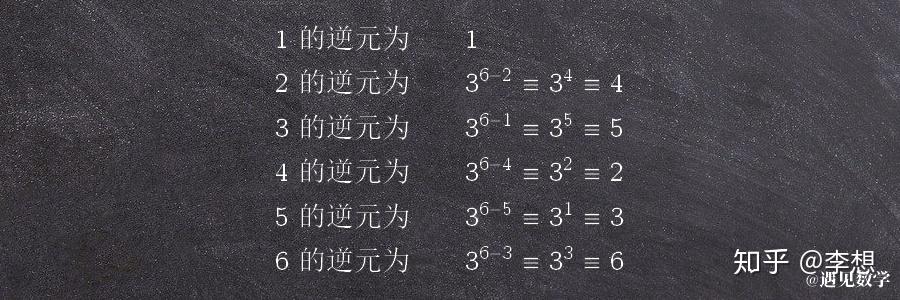 1 的逆元为 1
2 的逆元为 3^{6-2} ≡ 3^4 ≡ 4
3 的逆元为 3^{6-1} ≡ 3^5 ≡ 5
4 的逆元为 3^{6-4} ≡ 3^2 ≡ 2
5 的逆元为 3^{6-5} ≡ 3^1 ≡ 3
6 的逆元为 3^{6-3} ≡ 3^3 ≡ 6
知乎 @李想
@遇见数学